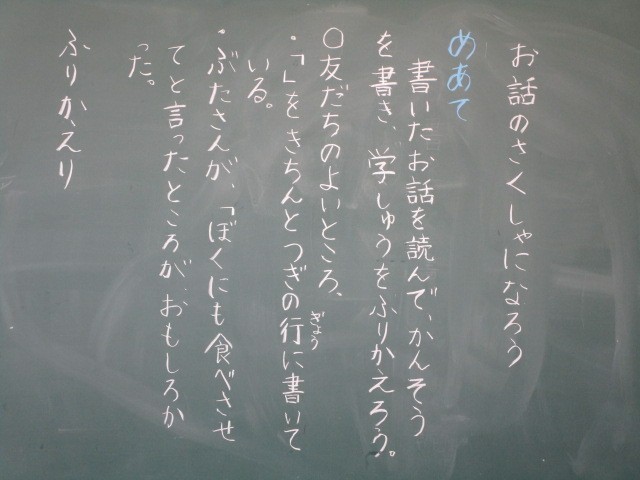 お話のさくしゃになろう
めあて
書いたお話を読んで、かんそう
を書き、学しゅうをふりかえろう。
○友だちのよいところ、
・「」をきちんとつぎの行に書いて
ぎょう
いる。
・ぶたさんが、「ぼくにも食べさせ
てと言ったところが、おもしろか
った。
ふりかえり